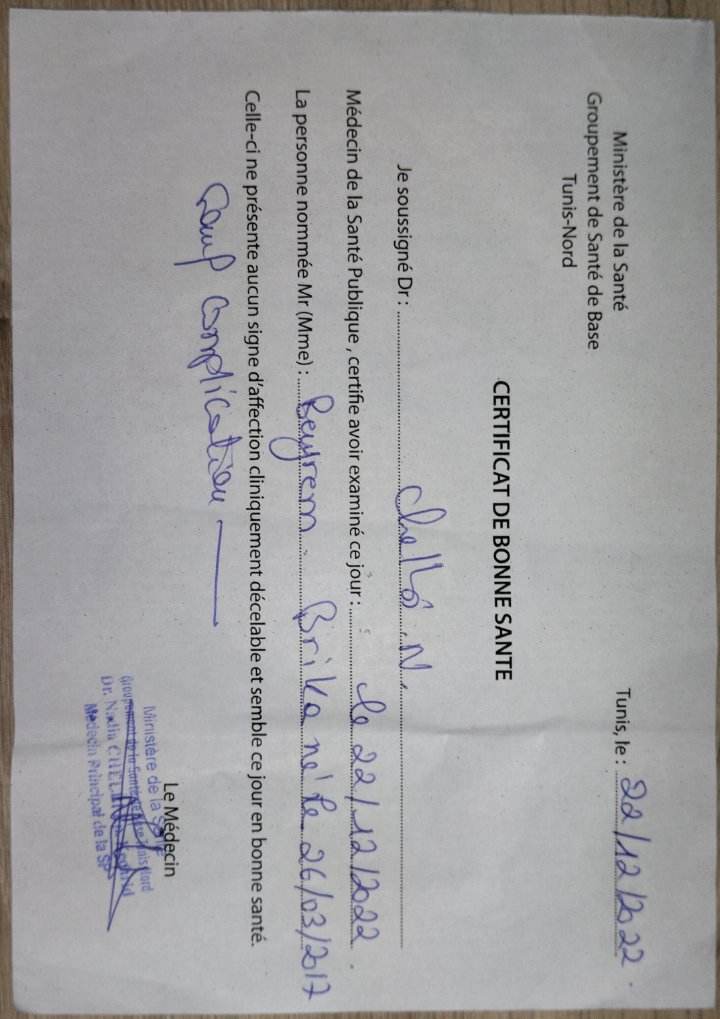 Ministère de la Santé
Groupement de Santé de Base
Tunis-Nord
Tunis, le : 22/12/2022.
CERTIFICAT DE BONNE SANTE
Je soussigné Dr : N.
Médecin de la Santé Publique , certifie avoir examiné ce jour : le 22/12/2022.
La personne nommée Mr (Mme) : Beyrem Brika né le 26/03/2017
Celle-ci ne présente aucun signe d'affection cliniquement décelable et semble ce jour en bonne santé.
complication
Le Médecin
Ministère de la
Groupement de la Santé de Base Tunis Nord
Dr.
Médecin Principal de la SP